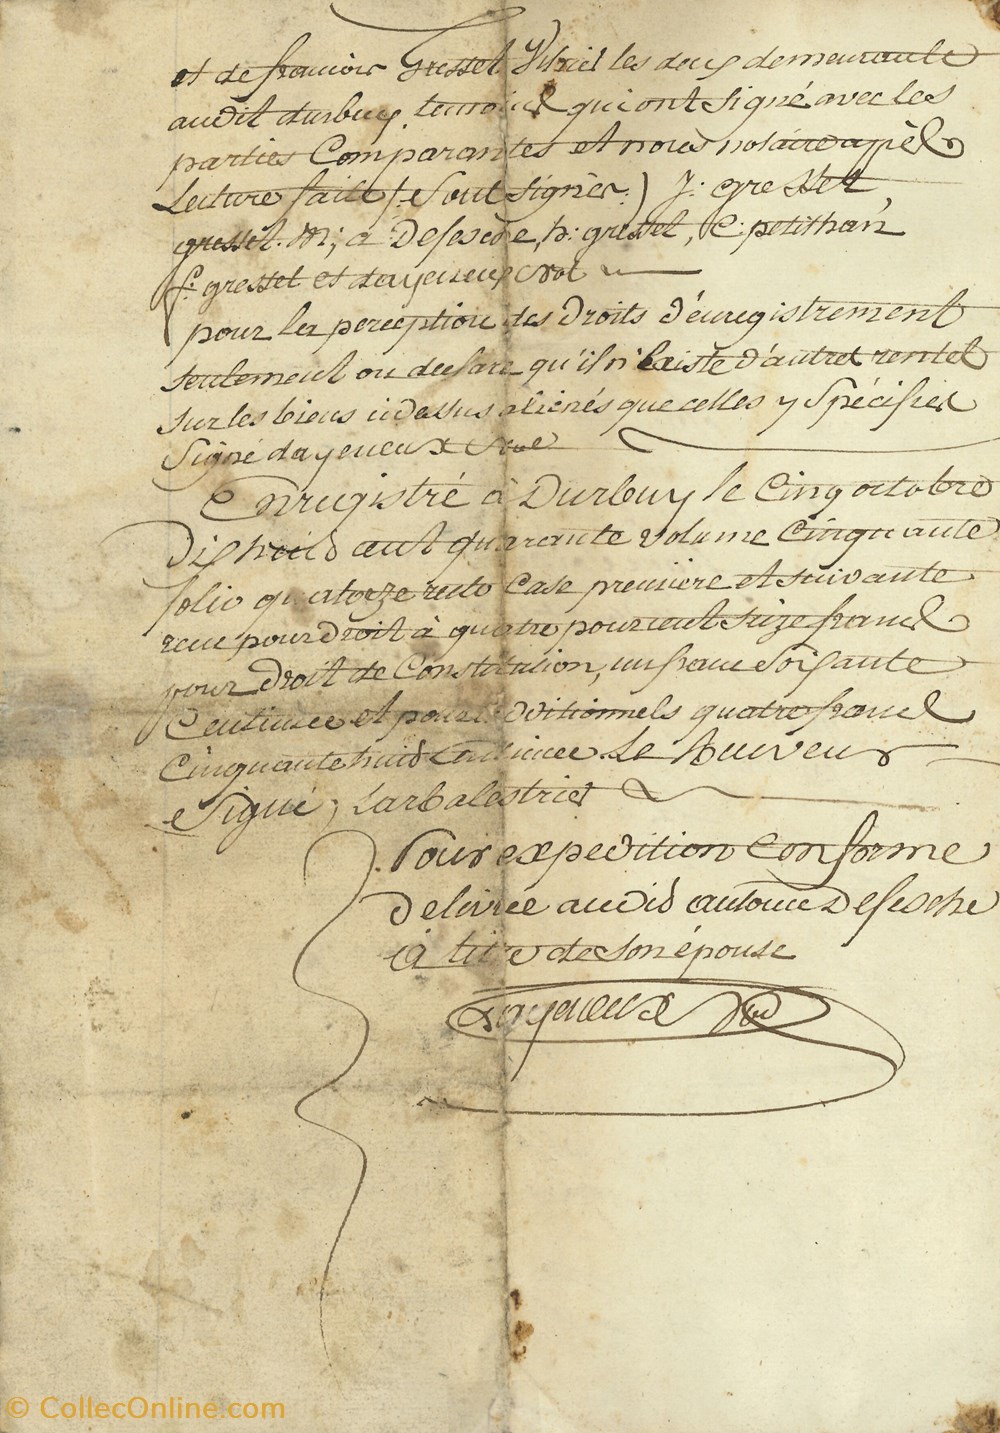 et de francois Gresset Vitriel les deux demeurants
audit durbuy, temoins qui ont signé avec les
parties Comparantes et nous notaire après
Lecture faite /: sont signés :) J: gresset
gresset. M: a Defesche, h: gresset, C: petithan
f: gresset et dayeneux Not
pour la perception des Droits d'énregistrement
seulement on declare qu'il n'éxiste d'autres rentes
sur les biens cidessus aliénés que celles y Spécifiés
Signé dayeneux Not
Enregistré à Durbuy le Cinq octobre
Dix huit cent quarante volume Cinquante
folio quatorze recto Case premiére et suivante
recu pour Droit à quatre pour cent seize francs
pour Droit de Constitution, un franc Soixante
Centimes et pour additionnels quatre francs
Cinquante huit Centimes. Le Receveur
Signé; Larbalestrier
Pour expedition Conforme
Delivrée audit antoine Defesche
à titre de son épouse
Dayeneux Not
© CollecOnline.com